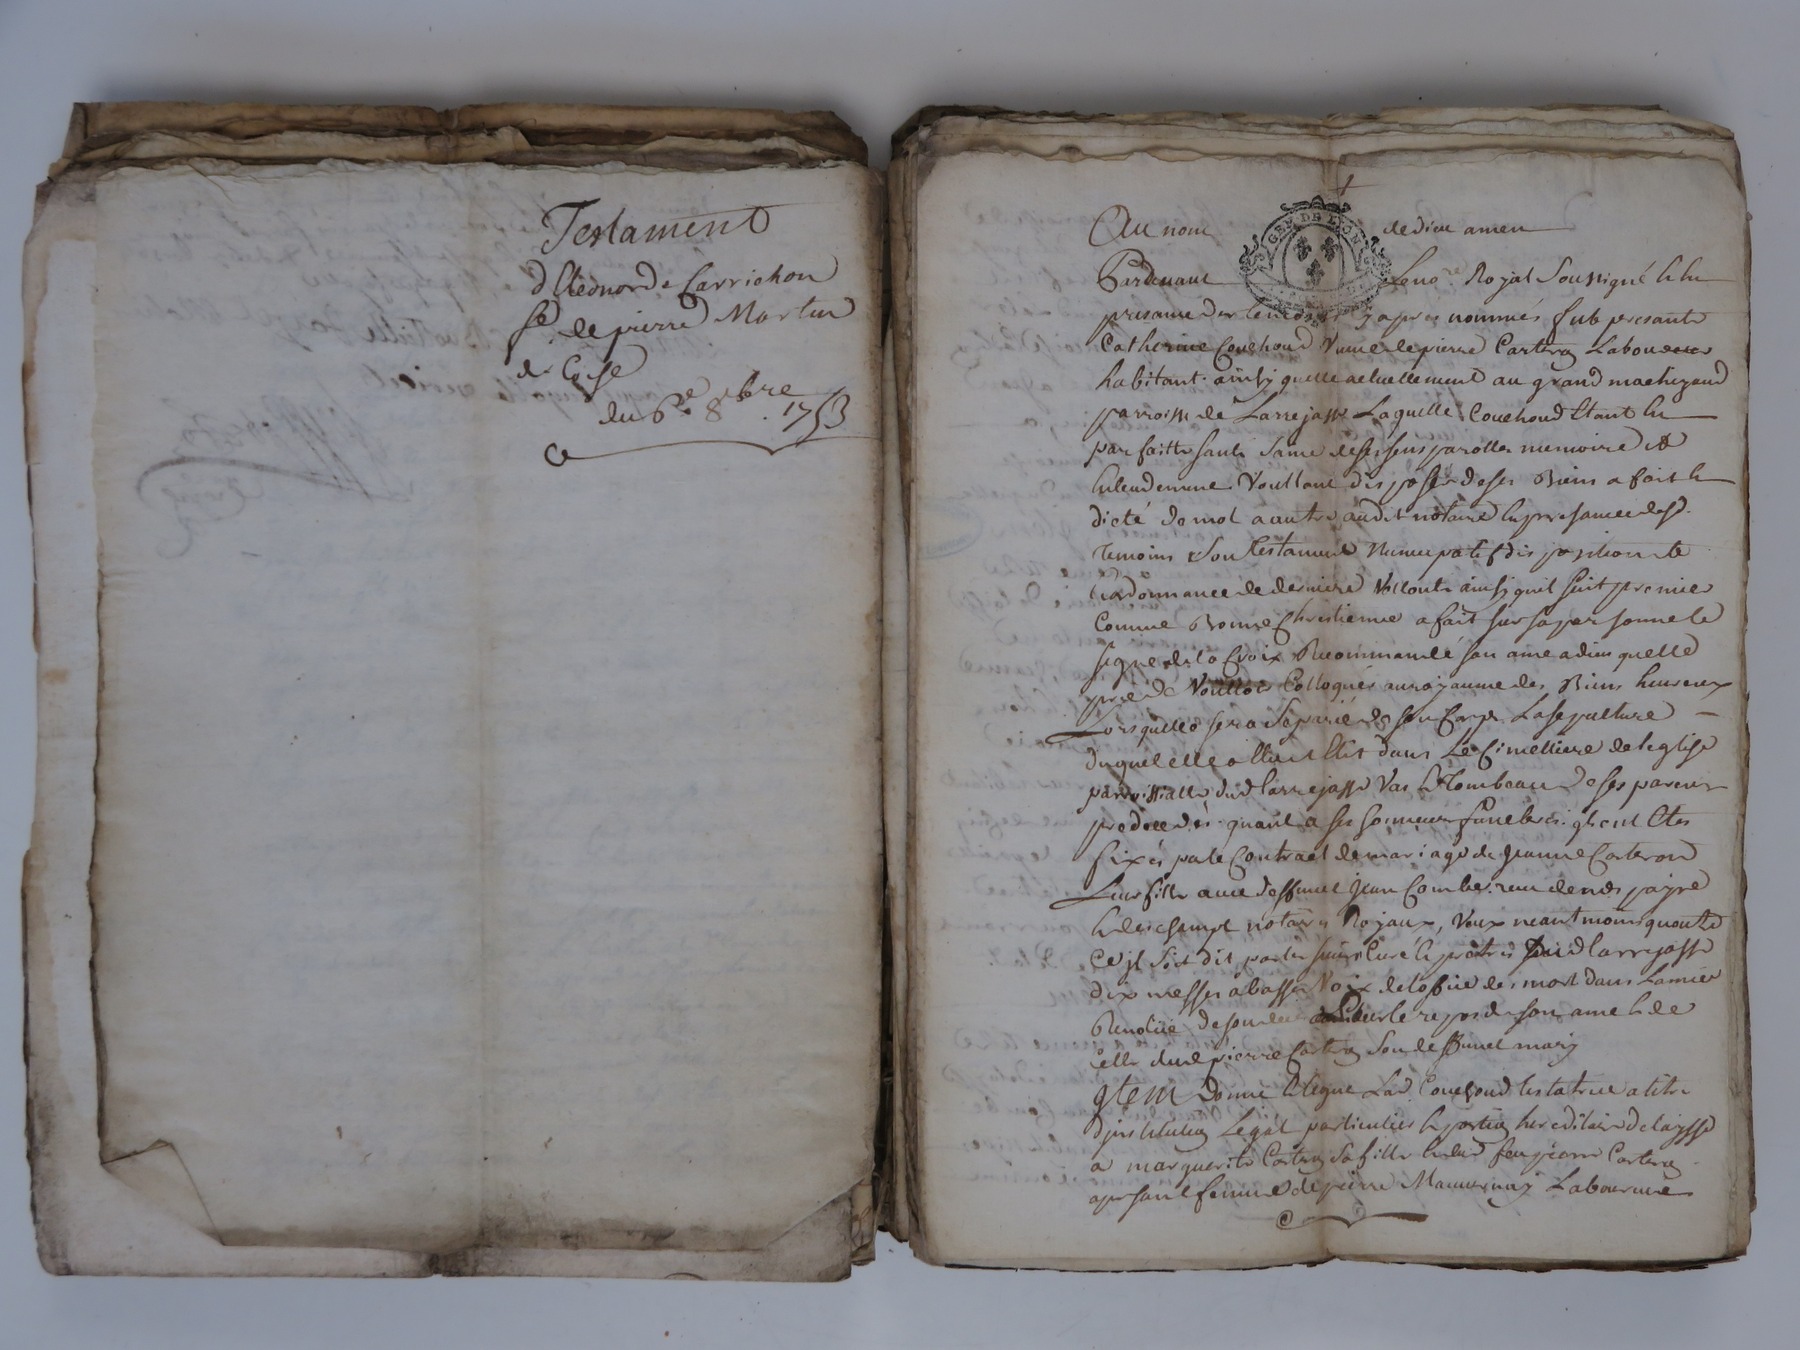 Testament
d'Eléonord Carrichon
fe. de pierre Martin
de Coise
du 6e. 8bre. 1753
Au nom de dieu amen
GEN DE LYON
Pardevant Le no.re Royal Soussigné & en
presance des temoins y apres nommés fut presante
Catherine Couchoud Veuve de pierre Carteron Laboureur
habitant ainsy quelle actuellement au grand
parroisse de Larrejasse Laquelle Couchoud Etant en
parfaitte santé saine de ses sens parolles memoire et
Entendement Voullant disposer de ses Biens a fait &
dicté de mot a autre audit notaire en presance desd.
temoins Son testament Nuncupatif disposition et
ordonnance de derniere Vollonté ainsy quil suit premier
Comme Bonne Chrestienne a fait sur sa personne le
signe de la Croix Recommandé son ame a dieu quelle
prie de Voulloir Colloquer au royaume des Biens heureux
Lors quelle sera séparée de son Corps La sepulture
duquel elle a Elue dans Le Cimettiere de leglise
parroissialle dud. larrejasse Vas & Tombeau de ses parens
predecedés quant a ses honneurs funebres ont Etes
fixés par le Contract de mariage de Jeanne Carteron
Leur fille avec deffunct Jean Combe reçu
& deschamps notaires Royaux, Veux neantmoins
soit dit par les sieurs Curé & prêtres dud larrejasse
dix messes a basse Voix de lofice des mort dans Lannée
Revolüe de son decès pour le repos de son ame & de
celle dud pierre Carteron Son deffunct mary
Item donne & Legue Lad. Couchoud testatrice a titre
dinstitution Legat particulier & portion hereditaire delaysse
a marguerite Carteron sa fille & dud feu pierre Carteron
apresant femme de pierre Laboureur